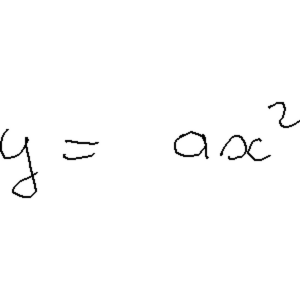 y = ax²